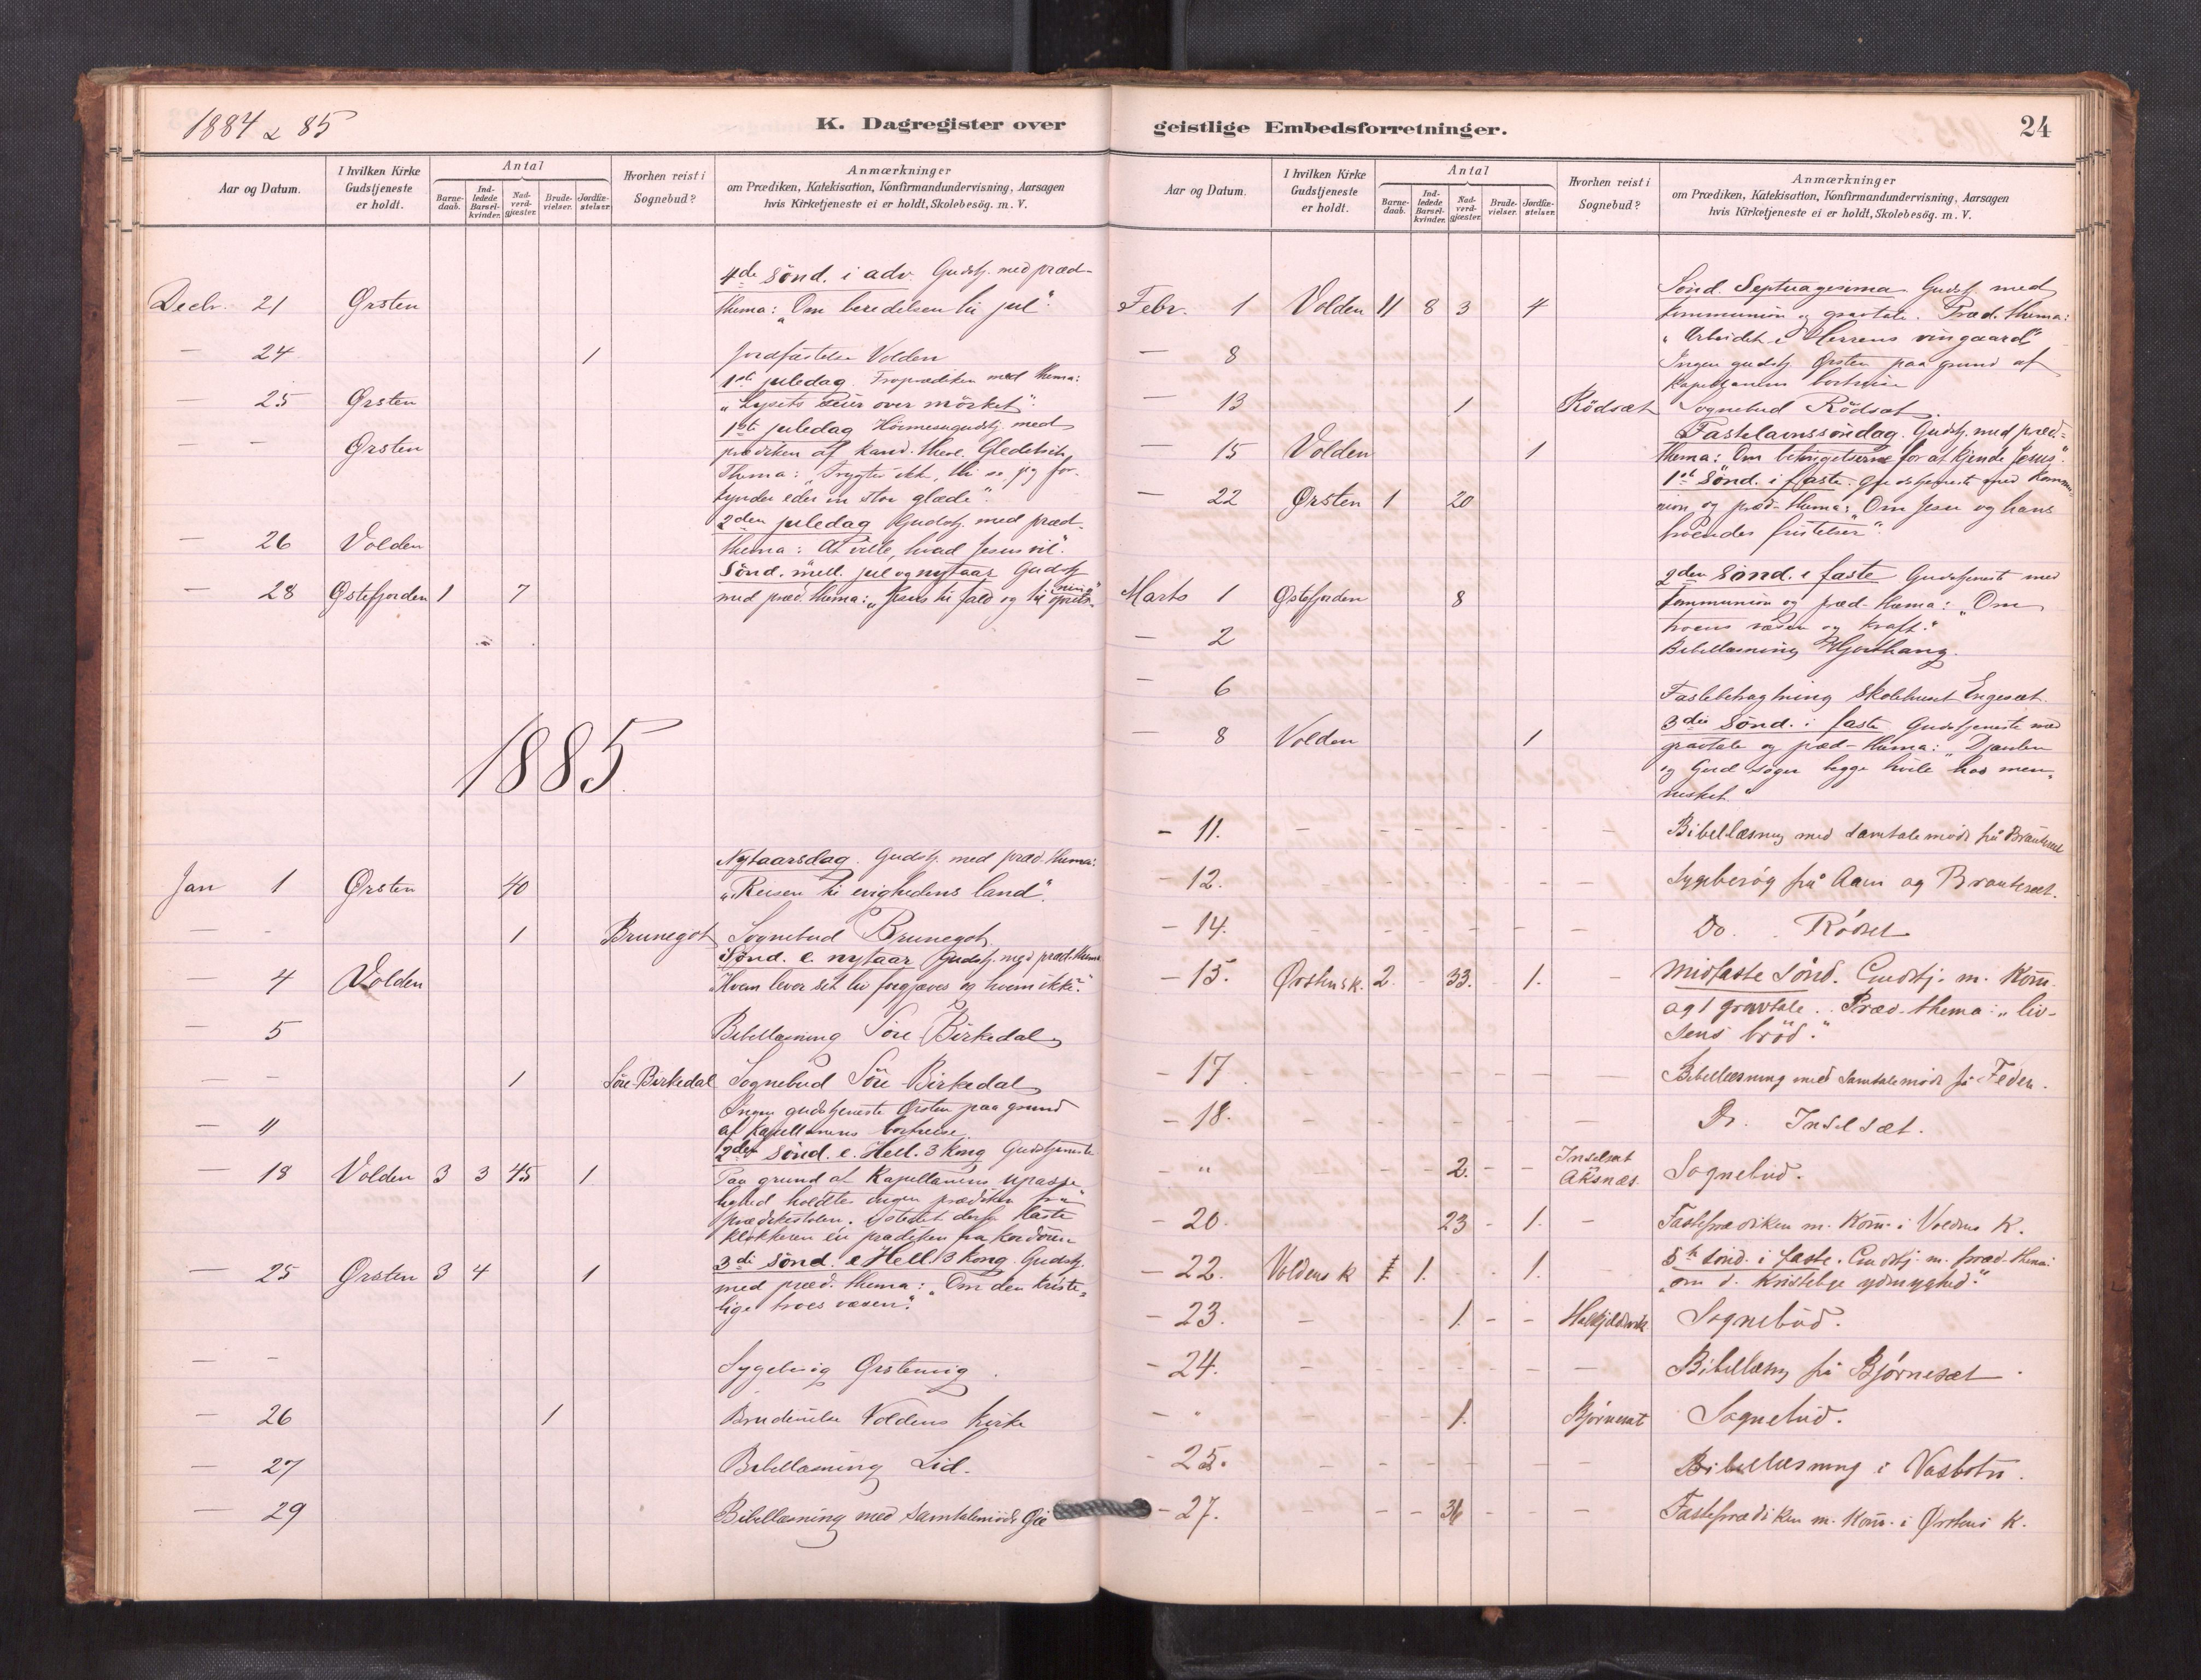 1884 & 85
K. Dagregister over
Aar og Datum.
I hvilken Kirke Gudstjeneste er holdt.
Antal
Barne-daab.
Ind-ledede Barsel-kvinder.
Nad-verd-gjæster.
Brude-vielser.
Jordfæ-stelser.
Hvorhen reist i Sognebud?
Anmærkninger
om Prædiken, Katekisation, Konfirmandundervisning, Aarsagen
hvis Kirketjeneste ei er holdt, Skolebesög. m. V.
4de sönd. i adv. Gudstj. med præd-
Decbr. 21 Ørsten thema: „Om beredelsen til jul“.
— 24 1 Jordfæstelse Volden
1ste juledag. Froprædiken med thema:
— 25 Ørsten „Lysets seier over mörket“.
1ste juledag Höimessegudstj. med
— — Ørsten prædiken af kand. theol. Gleditsch
Thema: „Frygter ikke, thi se, jeg for-
kynder eder en stor glæde“.
2den juledag Gudstj. med præd.
— 26 Volden thema: At ville, hvad Jesus vil“.
Sönd. mell. jul og nytaar Gudstj.
— 28 Østefjorden 1 7 med præd. thema: „Jesus til fald og til opreis-
ning“
1885.
Nytaarsdag. Gudstj. med præd. thema:
Jan 1 Ørsten 40 „Reisen til evighedens land“.
— — 1 Brunegot Sognebud Brunegot
Sönd. e. nytaar Gudstj. med præd. thema
— 4 Volden „Hvem lever sit liv forgjæves og hvem ikke?“
— 5 Bibellæsning Söre Birkedal
— — 1 Söre Birkedal Sognebud Söre Birkedal
Ingen gudstjeneste Ørsten paa grund
— 11 af kapellanens bortreise
2den sönd. e. Hell. 3 Kong Gudstjeneste
— 18 Volden 3 3 45 1 Paa grund af Kapellanens upasse-
lighed holdtes ingen prædiken fra
prædikestolen. Istedet derfor læste
klokkeren en prædiken fra kordören
3die sönd. e Hell 3 Kong. Gudstj.
— 25 Ørsten 3 4 1 med præd. thema: „Om den kriste-
lige troes væsen“.
— — Sygebesög Ørstenvig.
— 26 1 Brudevielse Voldens Kirke
— 27 Bibellæsning Lid.
— 29 Bibellæsning med samtalemöde
geistlige Embedsforretninger.
24
Aar og Datum.
I hvilken Kirke Gudstjeneste er holdt.
Antal
Barne-daab.
Ind-ledede Barsel-kvinder.
Nad-verd-gjæster.
Brude-vielser.
Jordfæ-stelser.
Hvorhen reist i Sognebud?
Anmærkninger
om Prædiken, Katekisation, Konfirmandundervisning, Aarsagen
hvis Kirketjeneste ei er holdt, Skolebesög. m. V.
Sönd. Septuagesima. Gudstj. med
Febr. 1 Volden 11 8 3 4 kommunion og gravtale. Præd. thema:
„Arbeidet i Herrens vingaard“
— 8 Ingen gudstj. Ørsten paa grund af
kapellanens bortreise
— 13 1 Rödsæt Sognebud Rödsæt.
Fastelavnssöndag. Gudstj. med præd.-
— 15 Volden 1 thema: Om betingelserne for at kjende Jesus“.
1ste Sönd. i faste. Gudstjeneste med Kommu-
— 22 Ørsten 1 20 nion og præd-thema: „Om Jesu og hans
troendes fristelser“.
2den sönd. i faste Gudstjeneste med
Marts 1 Østefjorden 8 kommunion og præd-thema: „Om
troens væsen og kraft.“
— 2 Bibellæsning Hjorthaug.
— 6 Fastebetragtning Skolehuset Engesæt.
3die Sönd. i faste Gudstjeneste med
— 8 Volden 1 gravtale og præd-thema: „Djævlen
og Gud söger begge hvile hos men-
nesket“
— 11. Bibellæsning med samtalemöde på
— 12. Sygebesög på Aam og Brautesæt.
— 14. Do. Rödset
— 15. Ørstens k. 2. 33. 1. Midfaste sönd. Gudstj. m. Kom.
og 1 gravtale. Præd-thema: „liv-
sens bröd.“
— 17. Bibellæsning med samtalemöde på
— 18. Do. Inselsæt.
— " 2. Inselsæt Aksnæs Sognebud.
— 20. 23 1. Fasteprædiken m. kom. i Voldens K.
— 22. Voldens k 1. 1. 5te sönd. i faste. Gudstj. m. præd-thema:
„om d. kristelige ydmyghed.“
— 23. 1. Sognebud.
— 24. Bibellæsn. på Bjørnesæt.
— " 1. Bjørnesæt Sognebud.
— 25. Bibellæsning i Vasbotn.
— 27. 36 Fasteprædiken m. kom. i Ørstens K.